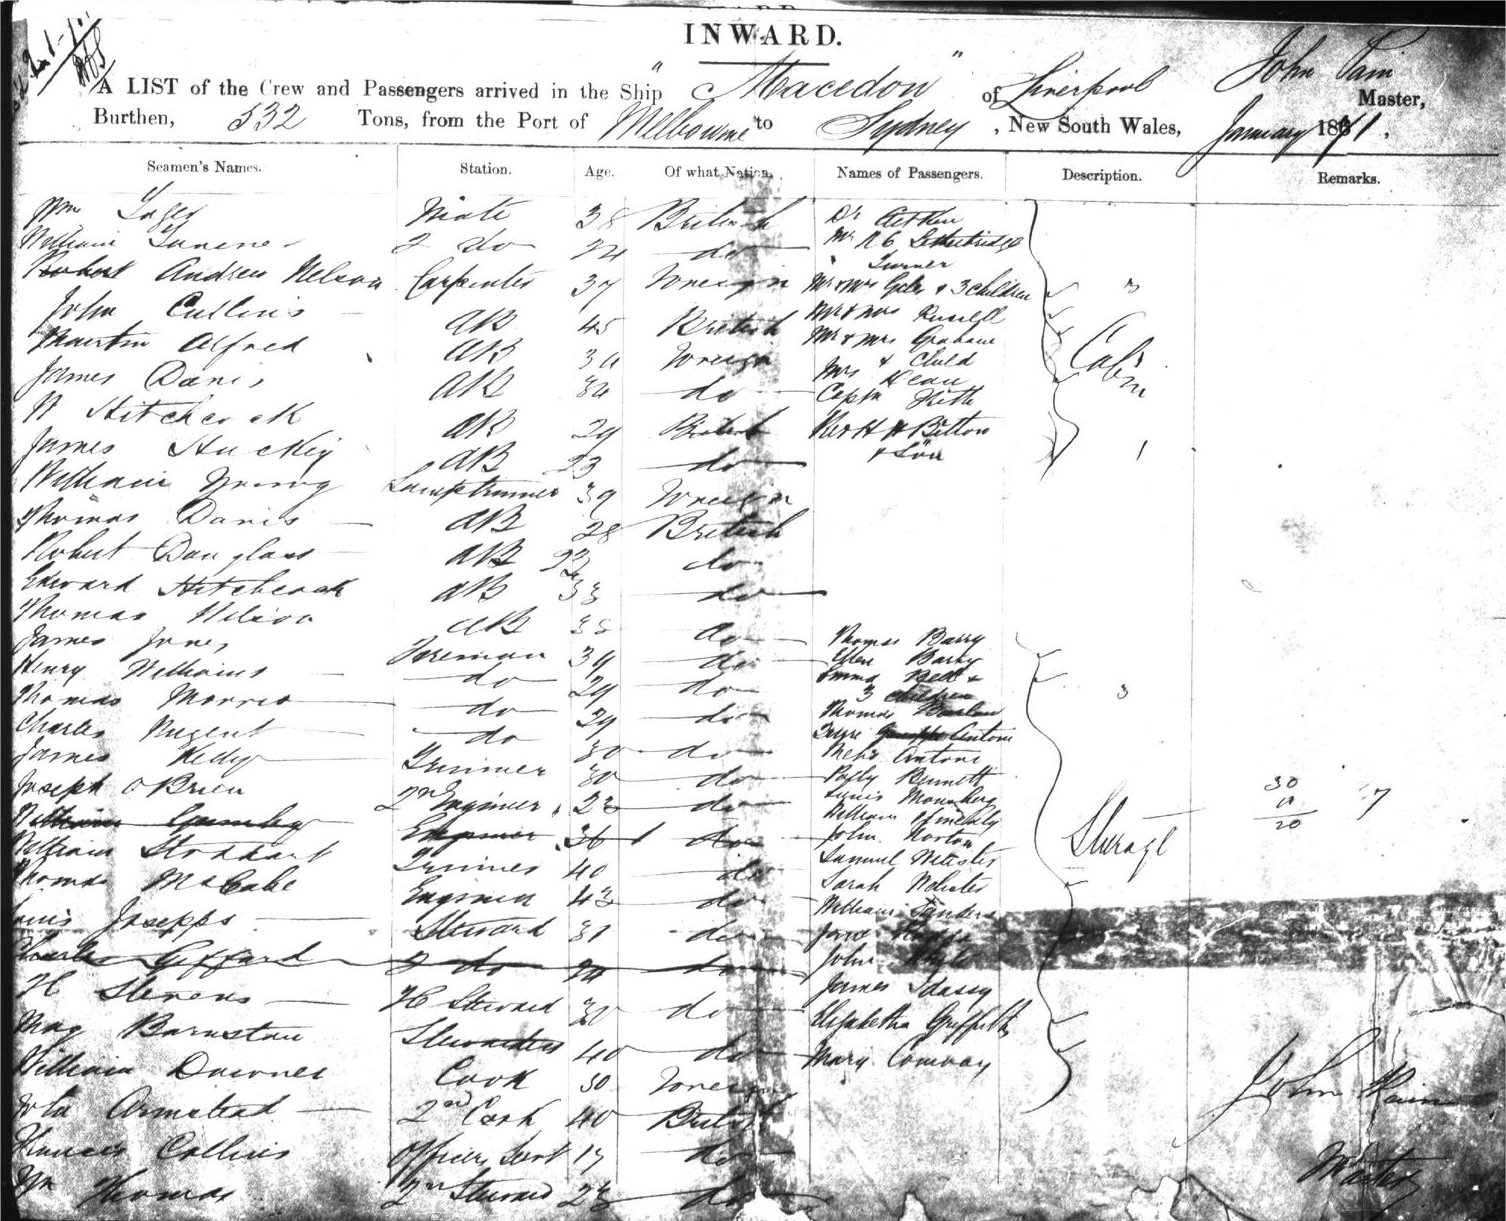 INWARD.
John Pain
A LIST of the Crew and Passengers arrived in the Ship "Macedon" of Liverpool Master,
Burthen, 532 Tons, from the Port of Melbourne to Sydney, New South Wales, January 1871,
Seamen's Names. Station. Age. Of what Nation. Names of Passengers. Description. Remarks.
Wm Mate 38 British Dr
William 2 do 24 do Mr R C Lethbridge
Turner
Robert Andrew Nelson Carpenter 37 Foreign Mr & Mrs Giles & 3 children
John Cullins AB 45 British Mr & Mrs Russell
Martin Alfred AB 30 Foreign Mr & Mrs Graham
& Child
James Davis AB 34 do Mrs Dean
Captn Cabin
H Hitchcock AB 29 British Rev H H Bitton
James AB 23 do & Son
William Young Lamptrimmer 39 Foreign
Thomas Davis AB 28 British
Robert Douglass AB 22 do
Edward Hitchcock AB 33 do
Thomas Wilson AB 38 do Thomas Barry
James Jones Fireman 39 do Ellen Barry
Henry Williams do 29 do Emma Bell &
3 children
Thomas Morris do 29 do Thomas
Charles Nugent do 30 do Antoni
James Kelly Trimmer 30 do Antoni
Joseph O'Brien 2nd Engineer 23 do Polly Bennett
William
William Engineer 36 do John Norton
William Stoddart Trimmer 40 do Samuel Webster Steerage
Thomas McCabe Engineer 43 do Sarah Webster
Louis Josepps Steward 31 do William Sanders
Charles Gifford 2 do do John
H Stevens FC Steward 30 do James
May Barnston Stewardess 40 do Elizabetha Griffiths
William Downes Cook 50 Foreign Mary Conway
John Armstead 2nd Cook 40 British
Francis Collins Officers Servt 17 do
Wm Thomas 2nd Steward 23 do
30
20
John Pain
Master